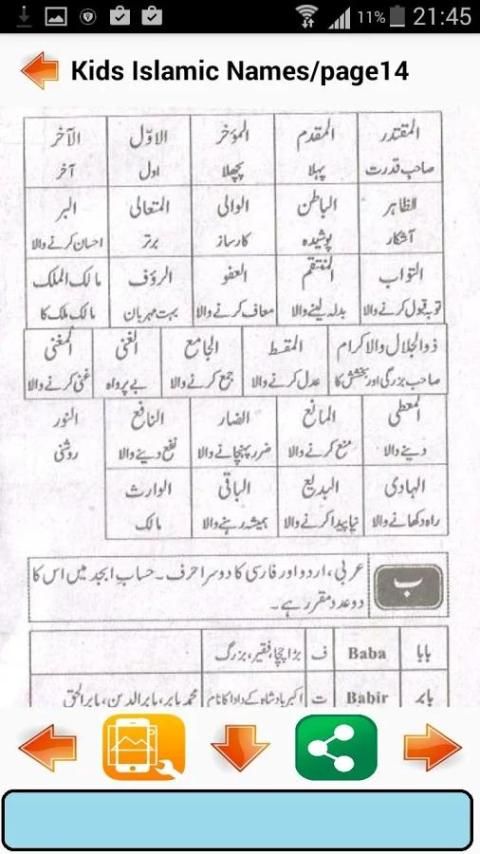 11% 21:45
Kids Islamic Names/page14
المقتدر المقدم المؤخر الاوّل الآخر
صاحب قدرت پہلا پچھلا اول آخر
الظاہر الباطن الوالی المتعالی البر
آشکار پوشیدہ کارساز برتر احسان کرنے والا
التواب المنتقم العفو الرؤف مالک الملک
توبہ قبول کرنے والا بدلہ لینے والا معاف کرنے والا بہت مہربان مالک ملک کا
ذوالجلال والاکرام المقسط الجامع الغنی المغنی
صاحب بزرگی اور بخشش کا عدل کرنے والا جمع کرنے والا بے پرواہ غنی کرنے والا
المعطی المانع الضار النافع النور
دینے والا منع کرنے والا ضرر پہنچانے والا نفع دینے والا روشنی
الہادی البدیع الباقی الوارث
راہ دکھانے والا نیا پیدا کرنے والا ہمیشہ رہنے والا مالک
ب عربی، اردو اور فارسی کا دوسرا حرف۔ حساب ابجد میں اس کا
دو عدد مقرر ہے۔
بابا Baba ف بڑا چچا، فقیر، بزرگ
بابر Babir ت اکبر بادشاہ کے دادا کا نام محمد بابر، بابر الدین، بابر الحق